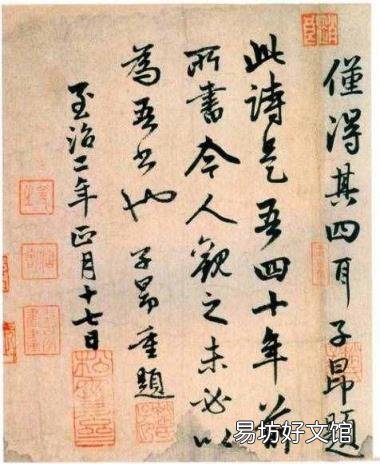 僅得其四耳子昂題
此詩是吾四十年前
所書今人觀之未必以
為吾書也子昂重題
至治二年正月十七日
易坊好文馆